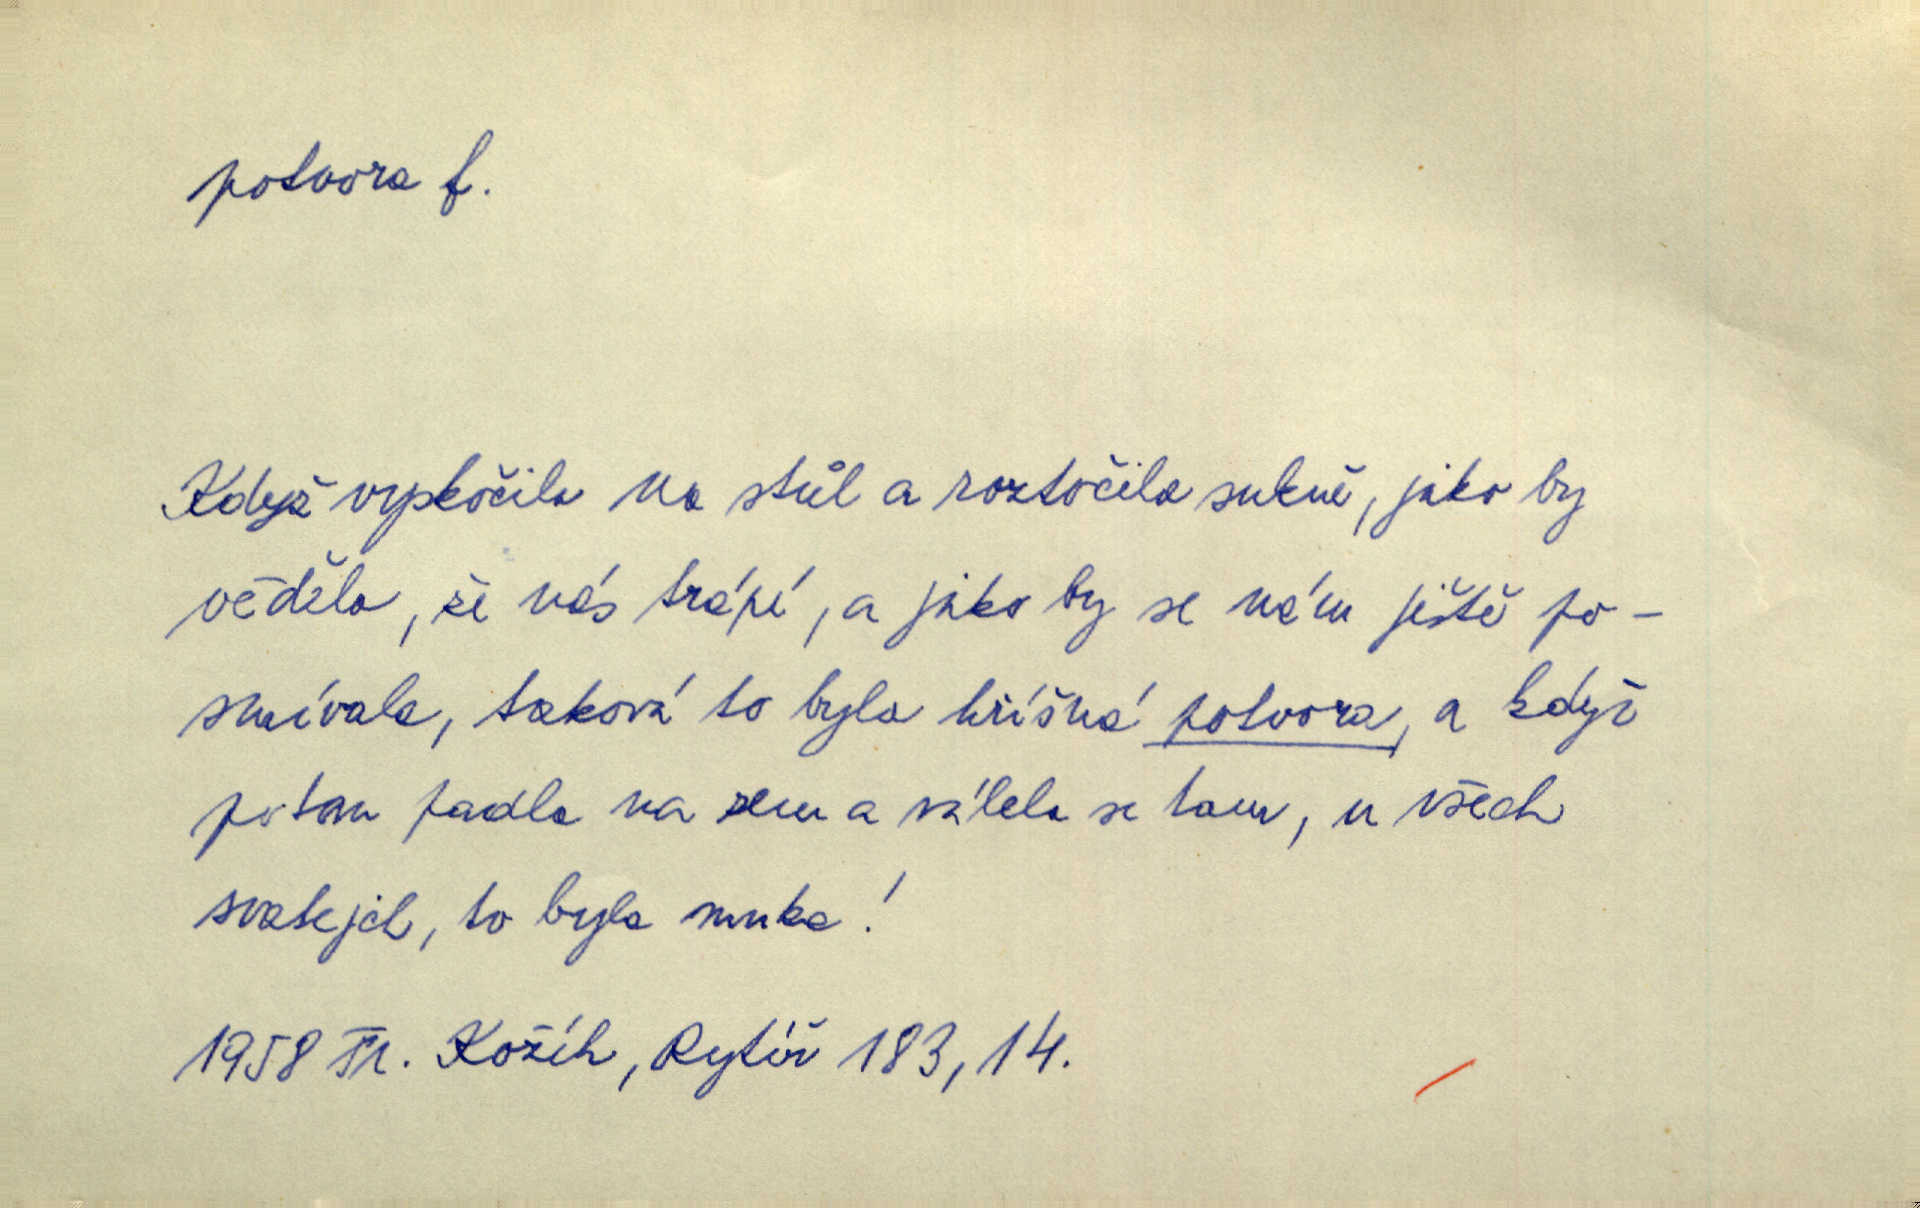 potvora f.
Když vyskočila na stůl a roztočila sukně, jako by
věděla, že nás trápí, a jako by se nám ještě po-
smívala, taková to byla hříšná potvora, a když
potom padla na zem a válela se tam, u všech
svatejch, to byla muka!
1958 Fr. Kožík, Rytíř 183, 14.